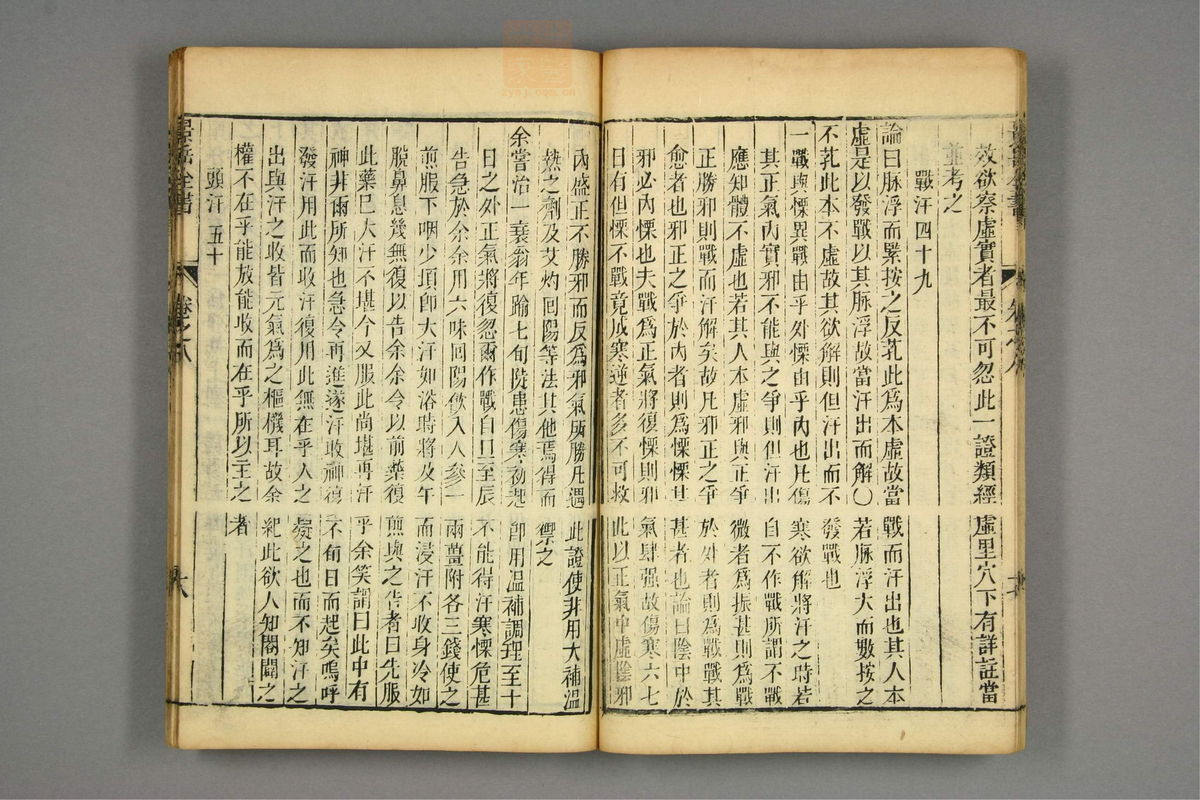 效欲察虛實者最不可忽此一證類經虛里穴下有詳註當
並考之
戰汗四十九
論曰脉浮而緊按之反芤此爲本虛故當戰而汗出也其人本
虛是以發戰以其脉浮故當汗出而解○若脉浮大而數按之
不芤此本不虛故其欲解則但汗出而不發戰也
一戰與慄異戰由乎外慄由乎內也凡傷寒欲解將汗之時若
其正氣內實邪不能與之爭則但汗出自不作戰所謂不戰
應知體不虛也若其人本虛邪與正爭微者爲振甚則爲戰
正勝邪則戰而汗解矣故凡邪正之爭於外者則爲戰戰其
愈者也邪正之爭於內者則爲慄慄其甚者也論曰陰中於
邪必內慄也夫戰爲正氣將復慄則邪氣肆强故傷寒六七
日有但慄不戰竟成寒逆者多不可救此以正氣中虛陰邪
內盛正不勝邪而反爲邪氣所勝凡遇此證使非用大補溫
熱之劑及艾灼回陽等法其他焉得而禦之
余嘗治一衰翁年踰七旬陡患傷寒初起卽用溫補調理至十
日之外正氣將復忽爾作戰自旦至辰不能得汗寒慄危甚
告急於余余用六味回陽飲入人參一兩薑附各三錢使之
煎服下咽少頃卽大汗如浴時將及午而浸汗不收身冷如
脫鼻息幾無復以告余余令以前藥復煎與之告者曰先服
此藥已大汗不堪今又服此尚堪再汗乎余笑謂曰此中有
神非爾所知也急令再進遂汗收神復不旬日而起矣嗚呼
發汗用此而收汗復用此無在乎人之疑之也而不知汗之
出與汗之收皆元氣爲之樞機耳故余紀此欲人知闔闢之
權不在乎能放能收而在乎所以主之者
頭汗五十
景岳全書
卷之八
六